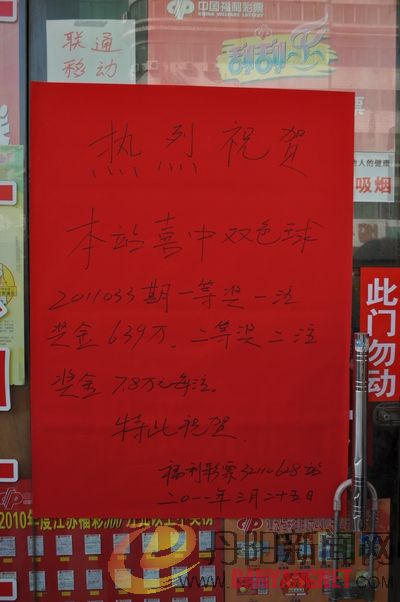 中国福利彩票
CHINA WELFARE LOTTERY
联通
移动
刮刮乐
热烈祝贺
他人的健康
吸烟
本站喜中双色球
2011033期一等奖一注
奖金639万、二等奖二注
奖金7.8万元每注。
特此祝贺
此门勿动
福利彩票32112628站
二0一一年三月二十五日
2010年度江苏福彩
丹阳新闻网